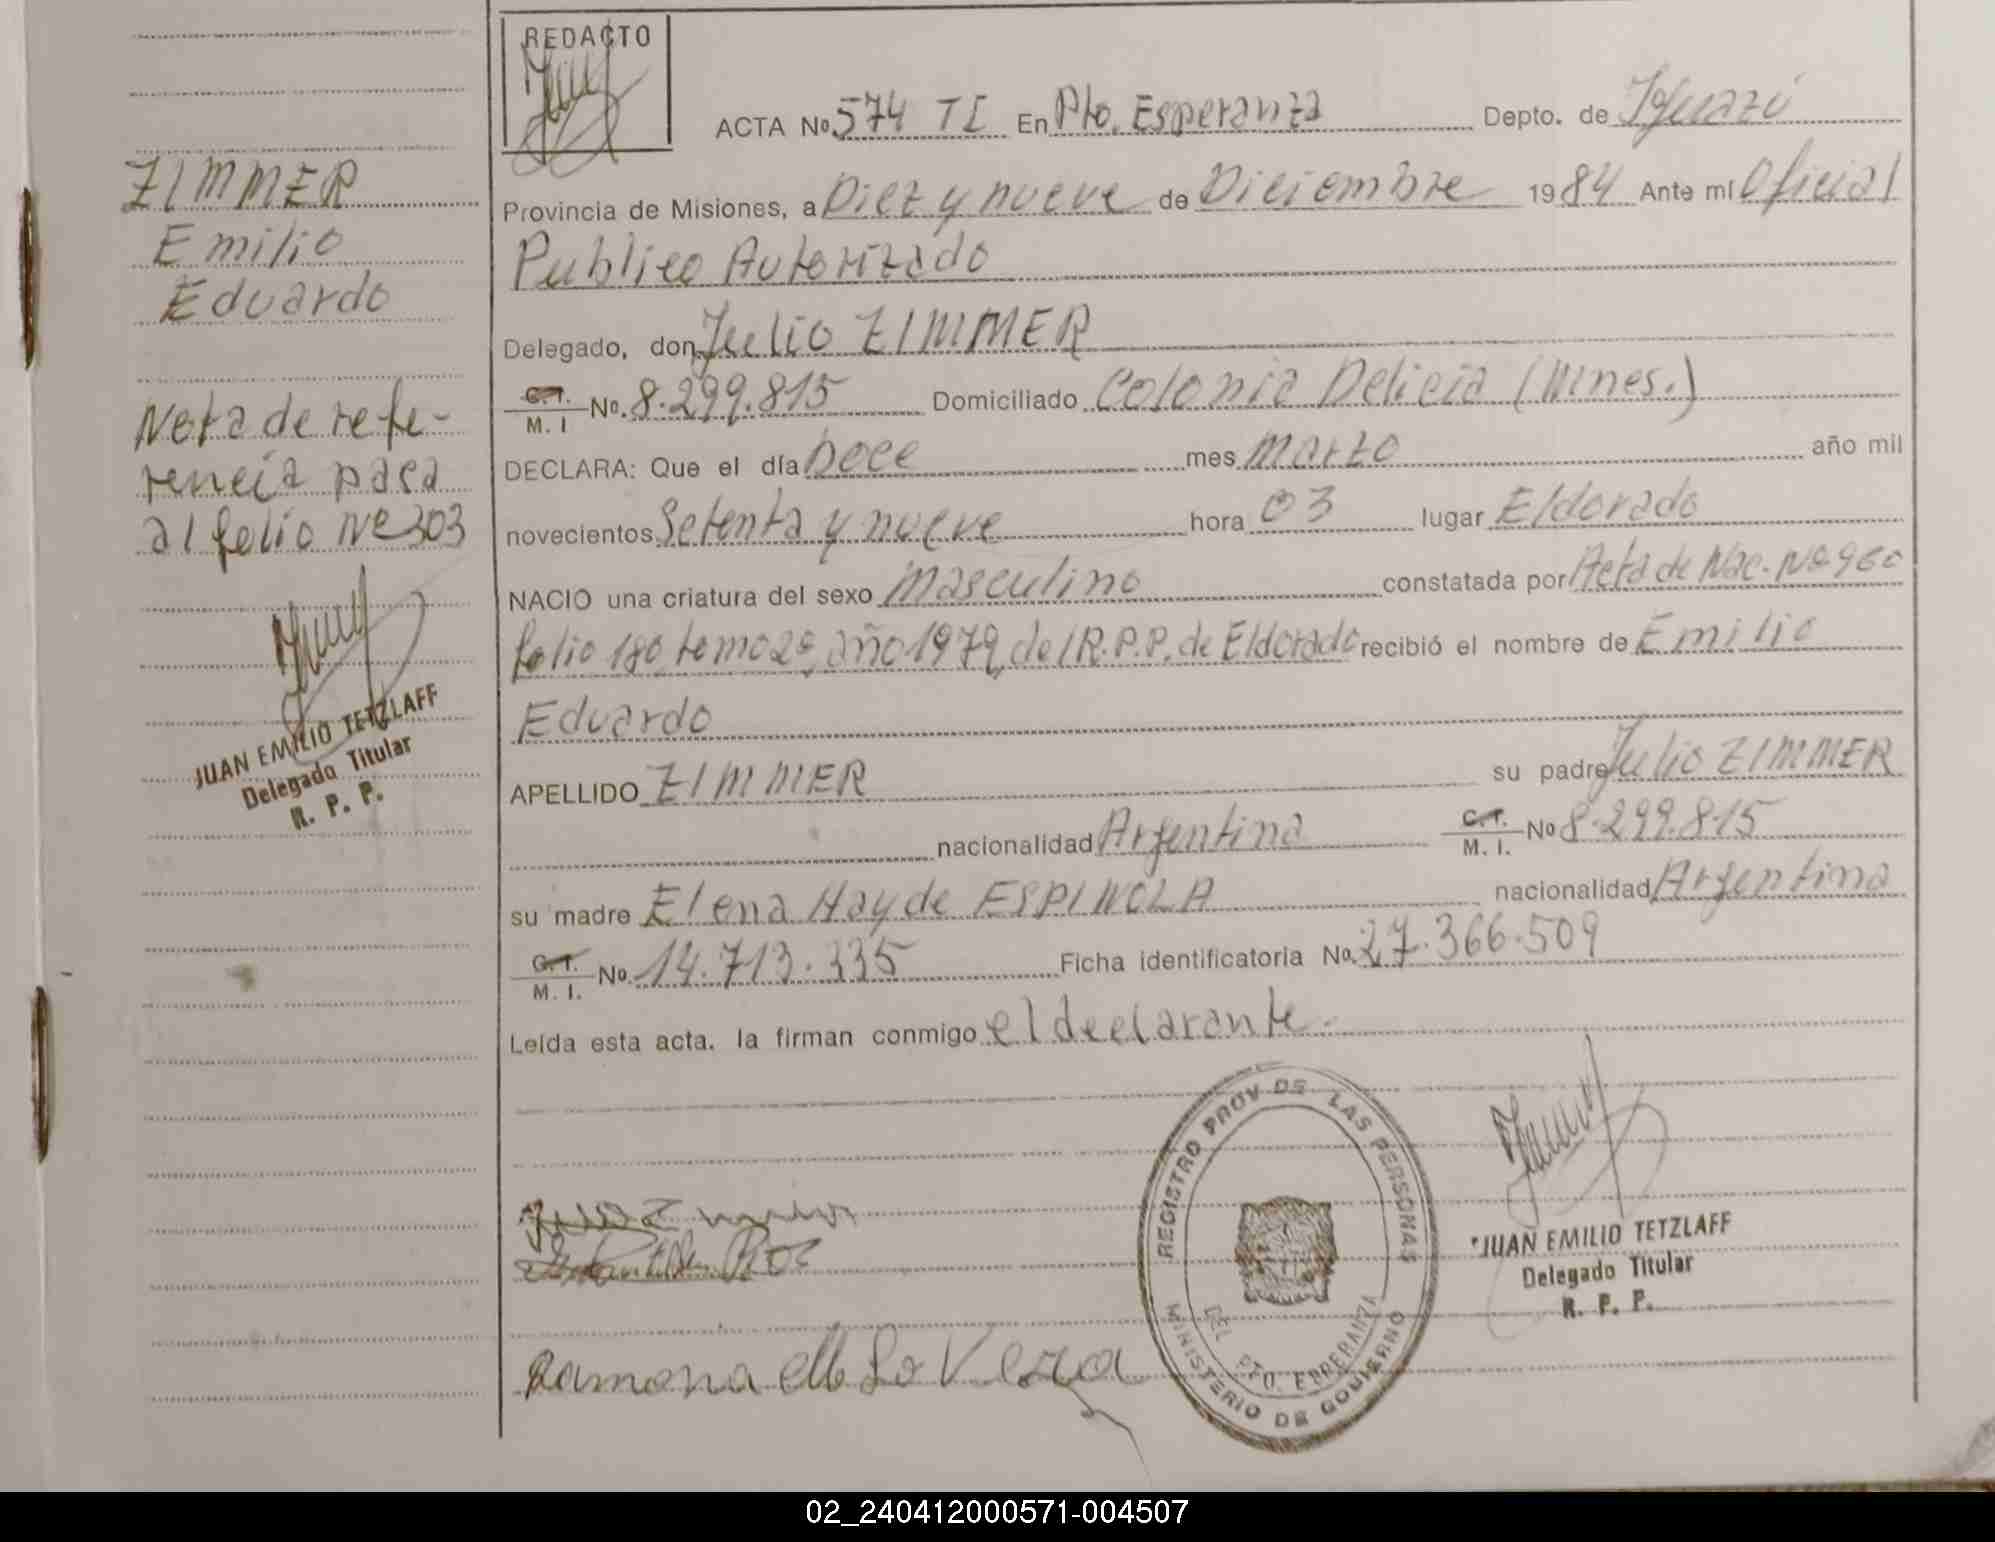 REDACTO
ACTA No 574 TI En Pto. Esperanza Depto. de Iguazú
Provincia de Misiones, a Diez y nueve de Diciembre 1984 Ante mí Oficial
Publico Autorizado
Delegado, don Julio ZIMMER
C.I. M. I No. 8.299.815 Domiciliado Colonia Delicia (Mnes.)
DECLARA: Que el día Doce mes Marzo año mil
novecientos Setenta y nueve hora 03 lugar Eldorado
NACIO una criatura del sexo Masculino constatada por Acta de Nac. Nº 960
folio 180 tomo 2º, año 1979, del R.P.P. de Eldorado recibió el nombre de Emilio
Eduardo
APELLIDO ZIMMER su padre Julio ZIMMER
nacionalidad Argentina C.I. M. I. No 8.299.815
su madre Elena Hayde ESPINOLA nacionalidad Argentina
C.I. M. I. No. 14.713.335 Ficha identificatoria No. 27.366.509
Leída esta acta. la firman conmigo el declarante.
ZIMMER
Emilio
Eduardo
Nota de refe-
rencia pasa
al folio Nº 303
JUAN EMILIO TETZLAFF
Delegado Titular
R. P. P.
Ramona Vera
REGISTRO PROV DE LAS PERSONAS
MINISTERIO DE GOBIERNO
DEL PTO. ESPERANZA
JUAN EMILIO TETZLAFF
Delegado Titular
R. P. P.
02_240412000571-004507